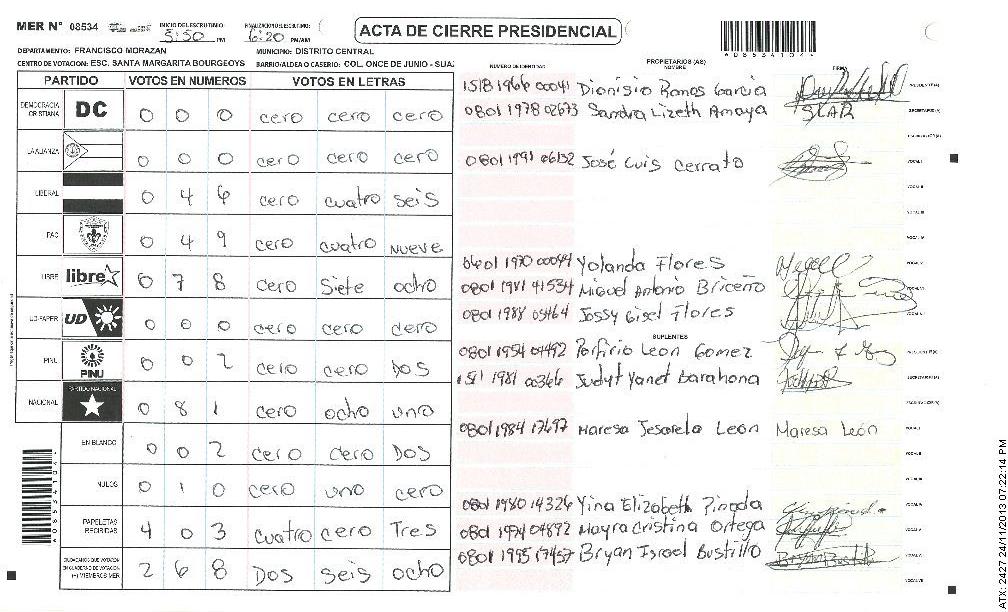 MER N° 08534 INICIO DEL ESCRUTINIO: 5:50 PM FINALIZACION ESCRUTINIO: 6:20 PM/AM ACTA DE CIERRE PRESIDENCIAL
DEPARTAMENTO: FRANCISCO MORAZAN MUNICIPIO: DISTRITO CENTRAL
CENTRO DE VOTACION: ESC. SANTA MARGARITA BOURGEOYS BARRIO/ALDEA O CASERIO: COL. ONCE DE JUNIO - SUA.
A08534104
PARTIDO VOTOS EN NUMEROS VOTOS EN LETRAS
DEMOCRACIA CRISTIANA DC 0 0 0 cero cero cero
LA ALIANZA 0 0 0 cero cero cero
LIBERAL 0 4 6 cero cuatro seis
PAC 0 4 9 cero cuatro nueve
LIBRE libre 0 7 8 cero Siete ocho
UD-FAPER UD 0 0 0 cero cero cero
PINU PINU 0 0 2 cero cero Dos
NACIONAL PARTIDO NACIONAL 0 8 1 cero ocho uno
EN BLANCO 0 0 2 cero cero Dos
NULOS 0 1 0 cero uno cero
PAPELETAS RECIBIDAS 4 0 3 cuatro cero Tres
CIUDADANOS QUE VOTARON EN CUADERNO DE VOTACION (+) MIEMBROS MER 2 6 8 Dos seis ocho
NUMERO DE IDENTIDAD PROPIETARIOS (AS) NOMBRE FIRMA
1518 1966 00041 Dionisio Ramos Garcia PRESIDENTE(A)
0801 1978 02673 Sandra Lizeth Amaya SLAR SECRETARIO(A)
ESCRUTADOR(A)
0801 1991 06132 José Luis Cerrato VOCAL I
VOCAL II
VOCAL III
VOCAL IV
0601 1970 00044 Yolanda Flores VOCAL V
0801 1981 41534 Miguel Antonio Briceño VOCAL VI
0801 1988 05464 Jossy Gisel Flores
SUPLENTES
0801 1954 04492 Porfirio Leon Gomez PRESIDENTE(A)
1511 1981 00366 Judyt Yanet Barahona SECRETARIO(A)
ESCRUTADOR(A)
0801 1984 17697 Maresa Jesarela León Maresa León VOCAL I
VOCAL II
VOCAL III
0801 1980 14326 Yina Elizabeth Pineda
0801 1974 04892 Mayra Cristina Ortega
0801 1995 17457 Bryan Israel Bustillo Bryan Bustillo
VOCAL VII
A08534104
ATX: 2427 24/11/2013 07:22:14 PM